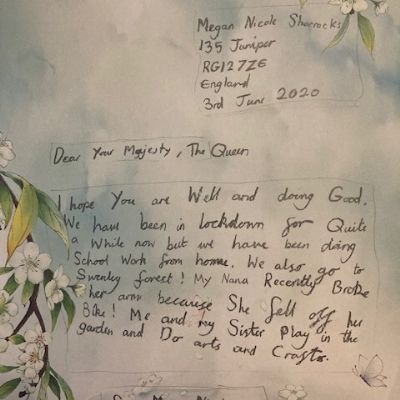 Megan Nicole Sharrocks
135 Juniper
RG12 7ZE
England
3rd June 2020
Dear Your Majesty, The Queen
I hope You are Well and doing Good.
We have been in lockdown for Quite
a While now but we have been doing
School Work from home. We also go to
Swenley forest! My Nana Recently Broke
her arm because She fell off her
Bike! Me and my Sister Play in the
garden and Do arts and Crafts.